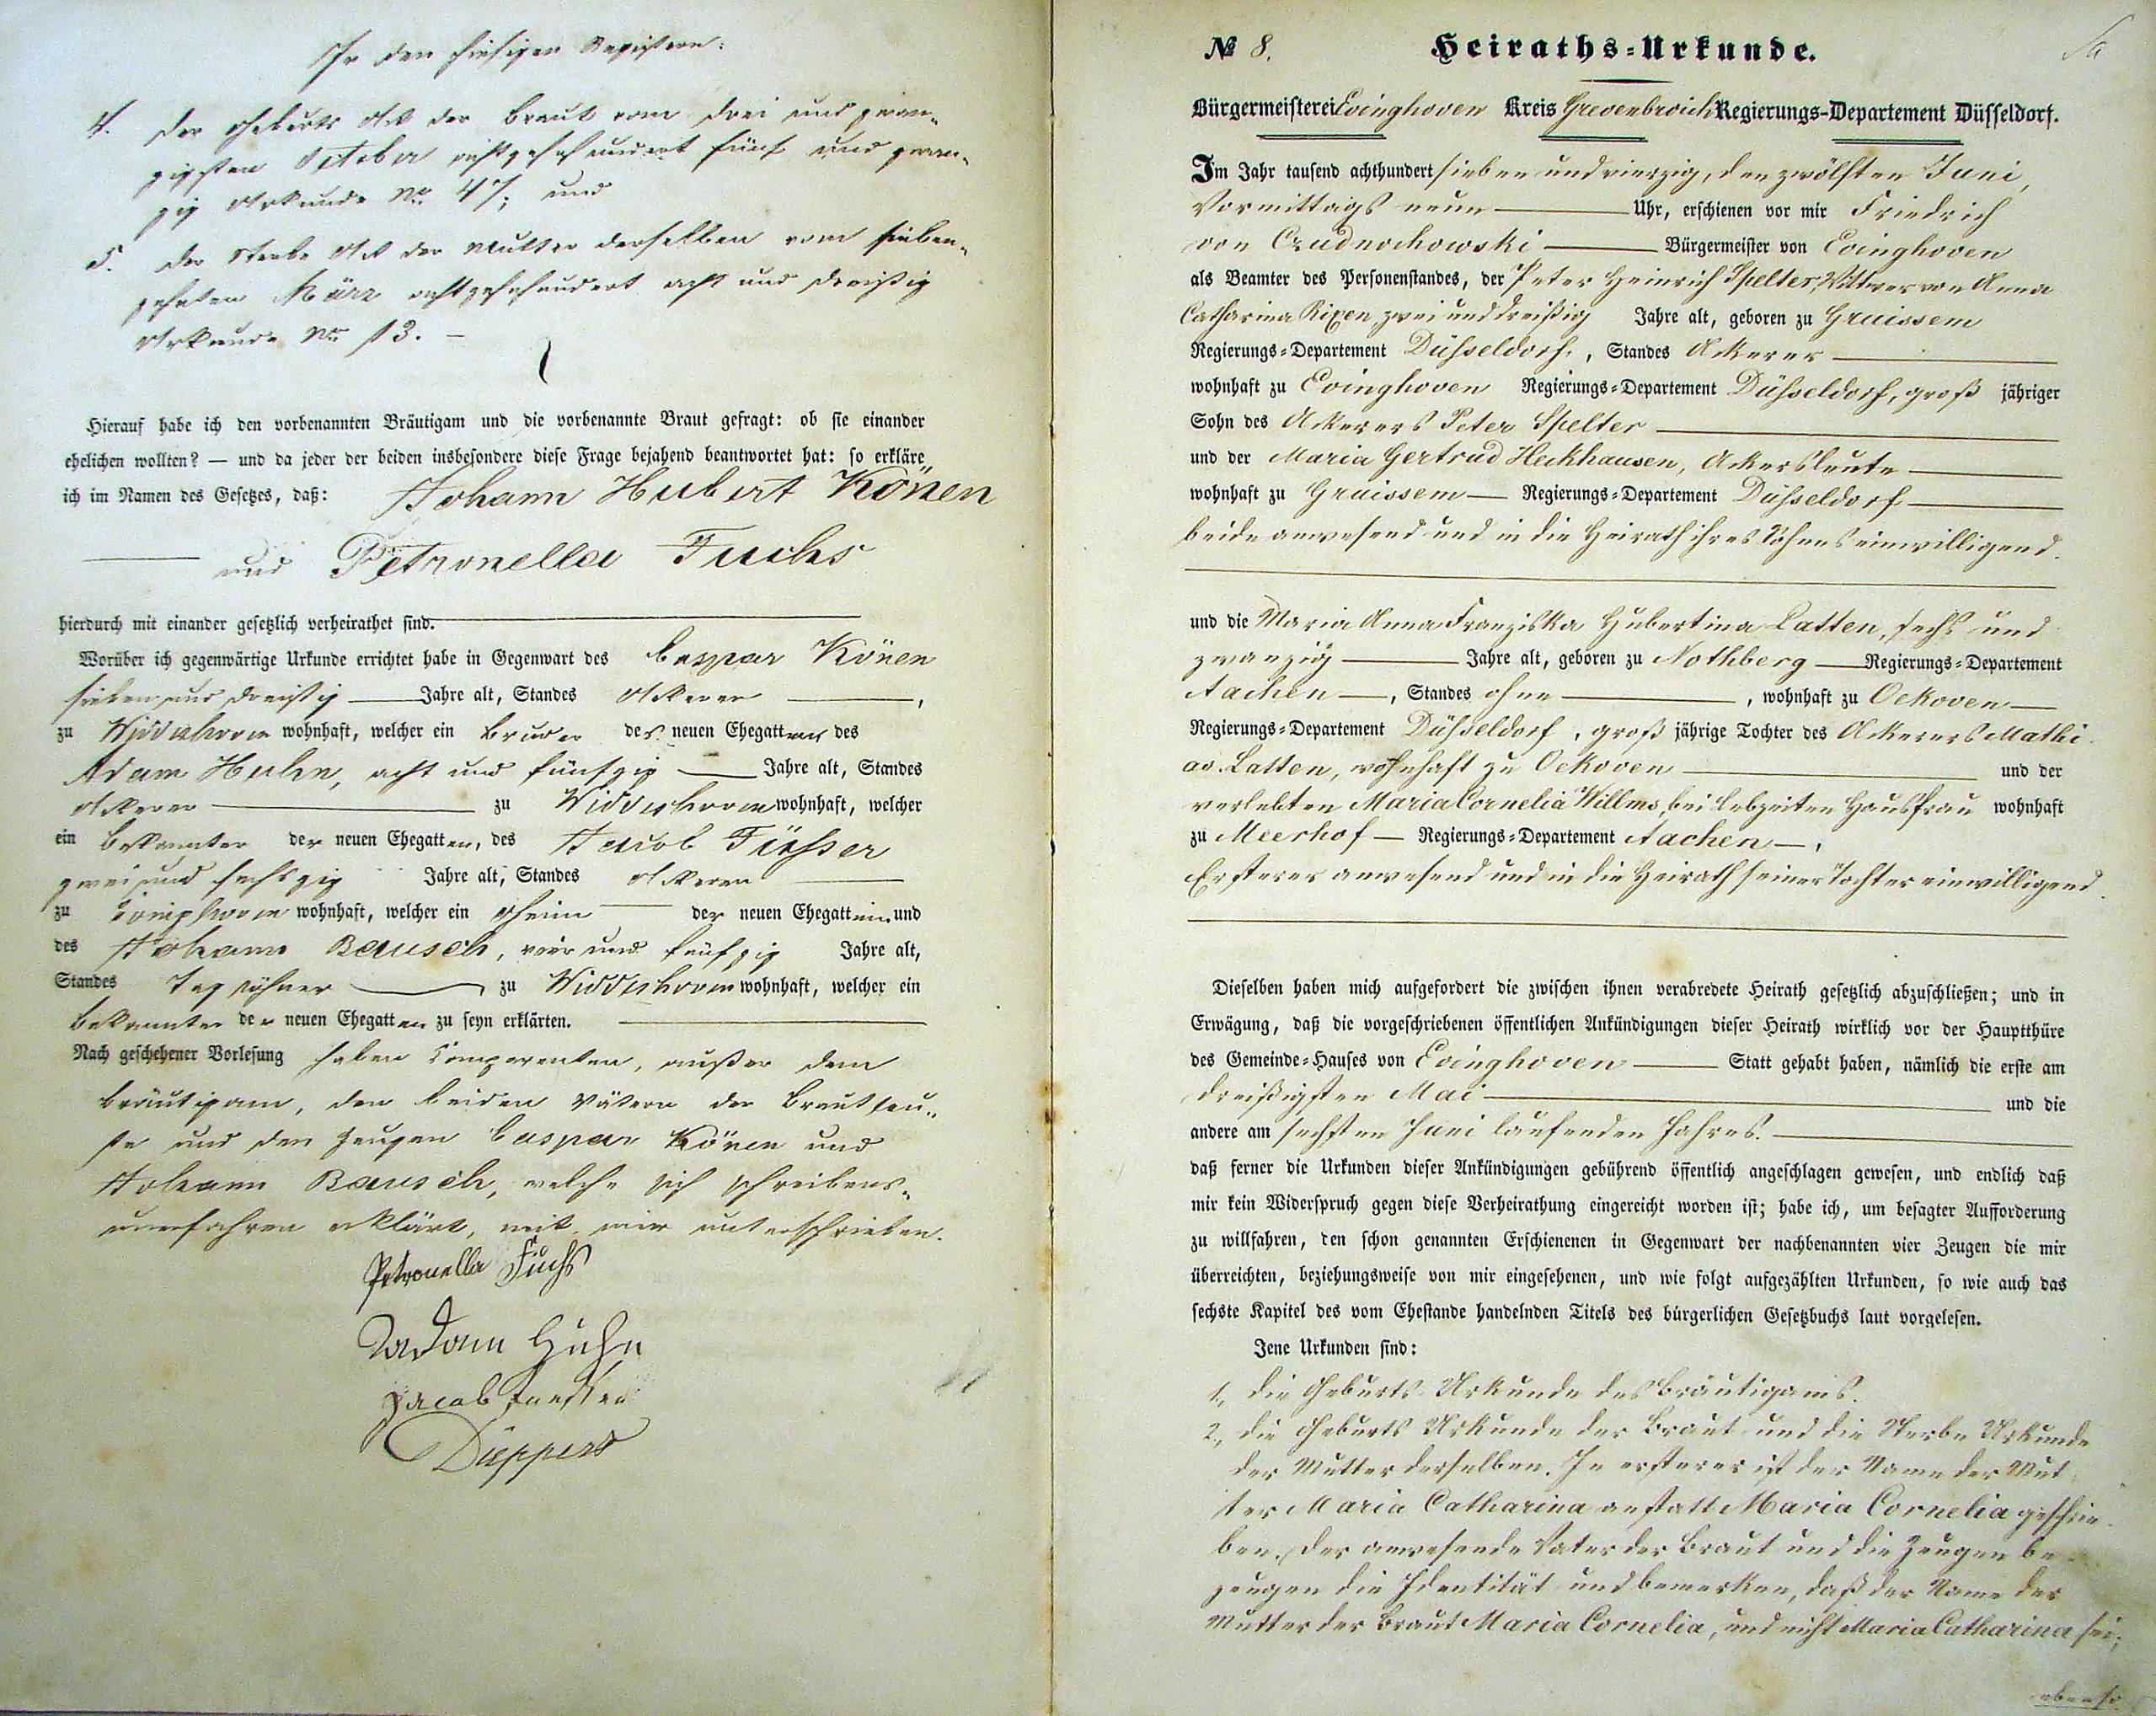 In den hiesigen Registern:
4. der Geburts Akt der Braut vom drei und zwan-
zigsten October achtzehnhundert fünf und zwan-
zig Urkunde No. 47; und
5. der Sterbe Akt der Mutter derselben vom sieben-
zehnten März achtzehnhundert acht und dreißig
Urkunde No 13. –
Hierauf habe ich den vorbenannten Bräutigam und die vorbenannte Braut gefragt: ob sie einander
ehelichen wollten? — und da jeder der beiden insbesondere diese Frage bejahend beantwortet hat: so erkläre
ich im Namen des Gesetzes, daß: Johann Hubert Könen
und Petronella Fuchs
hierdurch mit einander gesetzlich verheirathet sind.
Worüber ich gegenwärtige Urkunde errichtet habe in Gegenwart des Caspar Könen
sieben und dreissig Jahre alt, Standes Ackerer,
zu Widdeshoven wohnhaft, welcher ein Bruder des neuen Ehegatten des
Adam Huhn, acht und fünfzig Jahre alt, Standes
Ackerer zu Widdeshoven wohnhaft, welcher
ein Bekannter der neuen Ehegatten, des Jacob Füsser
zwei und sechszig Jahre alt, Standes Ackerer
zu Evinghoven wohnhaft, welcher ein Oheim der neuen Ehegattin und
des Johann Bausch, vier und fünfzig Jahre alt,
Standes Taglöhner, zu Widdeshoven wohnhaft, welcher ein
Bekannter der neuen Ehegatten zu seyn erklärten.
Nach geschehener Vorlesung haben Comparenten, außer dem
Bräutigam, den beiden Vätern der Brautleu-
te und den Zeugen Caspar Könen und
Johann Bausch, welche sich schreibens-
unerfahren erklärt, mit mir unterschrieben.
Petronella Fuchs
Adam Huhn
Jacob Fuesser
Düppers
№ 8. Heiraths-Urkunde.
Bürgermeisterei Evinghoven Kreis Grevenbroich Regierungs-Departement Düsseldorf.
Im Jahr tausend achthundert sieben und vierzig, den zwölften Juni,
Vormittags neun Uhr, erschienen vor mir Friedrich
von Czudnochowski Bürgermeister von Evinghoven
als Beamter des Personenstandes, der Peter Heinrich Spelter, Wittwer von Anna
Catharina Rixen zwei und dreißig Jahre alt, geboren zu Gruissem
Regierungs-Departement Düsseldorf, Standes Ackerer
wohnhaft zu Evinghoven Regierungs-Departement Düsseldorf, groß jähriger
Sohn des Ackerers Peter Spelter
und der Maria Gertrud Heckhausen, Ackersleute
wohnhaft zu Gruissem Regierungs-Departement Düsseldorf
beide anwesend und in die Heirath ihres Sohnes einwilligend.
und die Maria Anna Franziska Hubertina Latten, sechs und
zwanzig Jahre alt, geboren zu Nothberg Regierungs-Departement
Aachen, Standes ohne, wohnhaft zu Oekoven
Regierungs-Departement Düsseldorf, groß jährige Tochter des Ackerers Mathi-
as Latten, wohnhaft zu Oekoven und der
verlebten Maria Cornelia Willms, bei Lebzeiten Hausfrau wohnhaft
zu Meerhof — Regierungs-Departement Aachen —,
Ersterer anwesend und in die Heirath seiner Tochter einwilligend.
Dieselben haben mich aufgefordert die zwischen ihnen verabredete Heirath gesetzlich abzuschließen; und in
Erwägung, daß die vorgeschriebenen öffentlichen Ankündigungen dieser Heirath wirklich vor der Hauptthüre
des Gemeinde-Hauses von Evinghoven Statt gehabt haben, nämlich die erste am
dreißigsten Mai und die
andere am sechsten Juni laufenden Jahres.
daß ferner die Urkunden dieser Ankündigungen gebührend öffentlich angeschlagen gewesen, und endlich daß
mir kein Widerspruch gegen diese Verheirathung eingereicht worden ist; habe ich, um besagter Aufforderung
zu willfahren, den schon genannten Erschienenen in Gegenwart der nachbenannten vier Zeugen die mir
überreichten, beziehungsweise von mir eingesehenen, und wie folgt aufgezählten Urkunden, so wie auch das
sechste Kapitel des vom Ehestande handelnden Titels des bürgerlichen Gesetzbuchs laut vorgelesen.
Jene Urkunden sind:
1., die Geburts Urkunde des Bräutigams.
2., die Geburts Urkunde der Braut und die Sterbe Urkunde
der Mutter derselben. In ersterer ist der Name der Mut-
ter Maria Catharina anstatt Maria Cornelia geschrie-
ben. Der anwesende Vater der Braut und die Zeugen be-
zeugen die Identität und bemerken, daß der Name der
Mutter der Braut Maria Cornelia, und nicht Maria Catharina sei;
ebenso